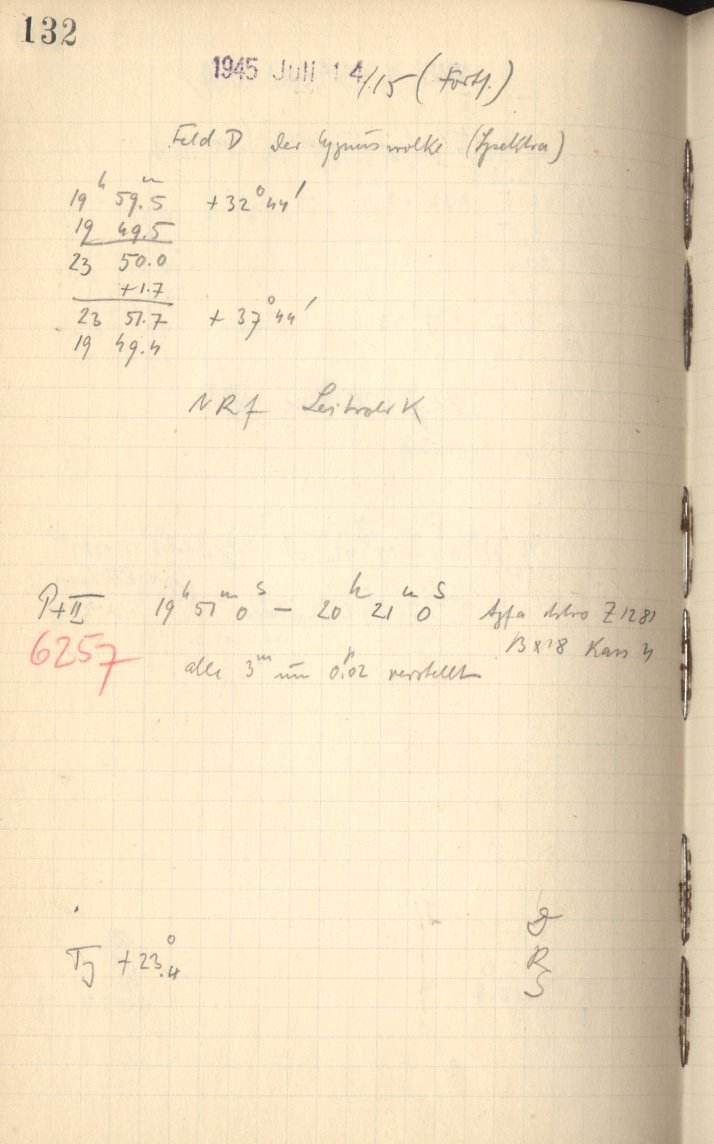 132
1945 Juli 14/15 (Forts.)
Feld D der Cygnuswolke (Spektra)
19ʰ 59ᵐ.5 +32°44′
19 49.5
23 50.0
+1.7
23 51.7 +37°44′
19 49.4
NRf
P+II 19ʰ 51ᵐ 0ˢ — 20ʰ 21ᵐ 0ˢ Agfa Astro Z 1281
6257
alle 3ᵐ um 0.02 verstellt
+23°.4
R
S